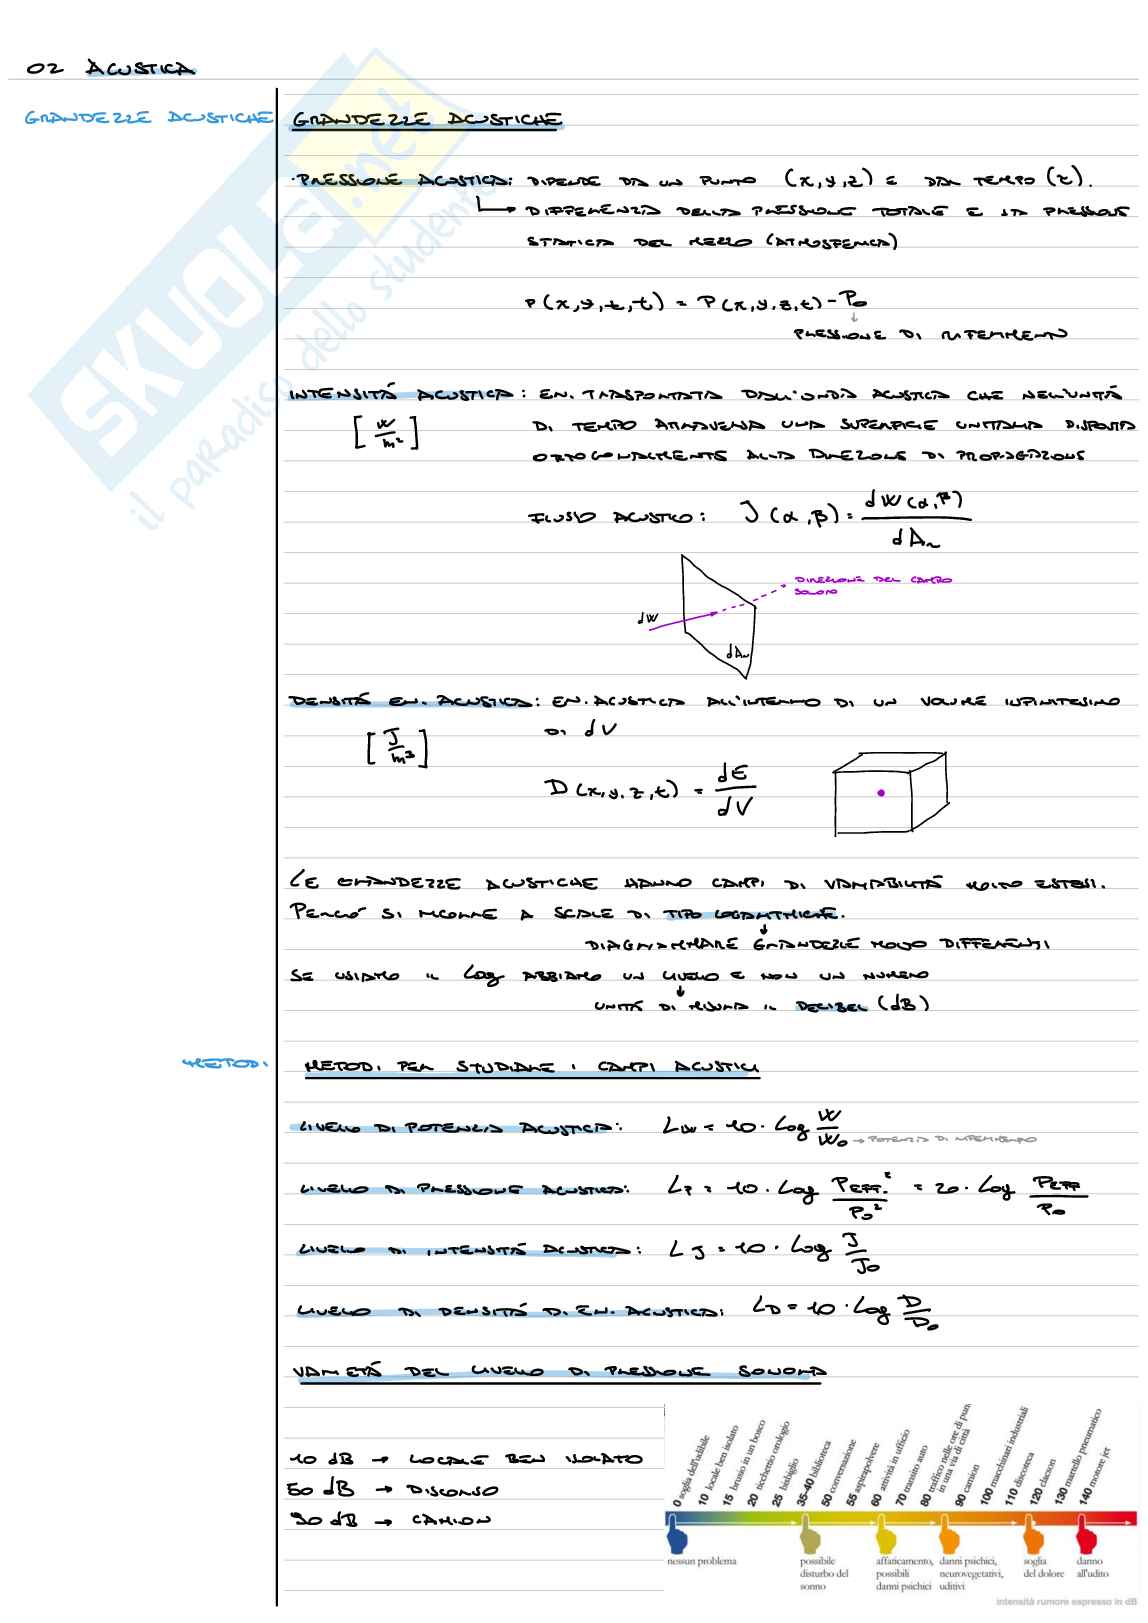 02 ACUSTICA
GRANDEZZE ACUSTICHE
GRANDEZZE ACUSTICHE
·PRESSIONE ACUSTICA: DIPENDE DA UN PUNTO (x,y,z) E DAL TEMPO (t).
DIFFERENZA DELLA PRESSIONE TOTALE E LA PRESSIONE
STATICA DEL MEZZO (ATMOSFERICA)
P(x,y,z,t) = P(x,y,z,t) - P₀
PRESSIONE DI RIFERIMENTO
INTENSITÁ ACUSTICA: EN. TRASPORTATA DALL'ONDA ACUSTICA CHE NELL'UNITÁ
[W/m²]
DI TEMPO ATTRAVERSA UNA SUPERFICIE UNITARIA DISPOSTA
ORTOGONALMENTE ALLA DIREZIONE DI PROPAGAZIONE
FLUSSO ACUSTICO: J(α,β) = dW(α,β)/dAₙ
DIREZIONE DEL CAMPO
SONORO
dW
dAₙ
DENSITÁ EN. ACUSTICA: EN. ACUSTICA ALL'INTERNO DI UN VOLUME INFINITESIMO
DI dV
[J/m³]
D(x,y,z,t) = dE/dV
LE GRANDEZZE ACUSTICHE HANNO CAMPI DI VARIABILITÁ MOLTO ESTESI.
PERCIÓ SI RICORRE A SCALE DI TIPO LOGARITMICHE.
DIAGRAMMARE GRANDEZZE MOLTO DIFFERENTI
SE USIAMO IL Log ABBIAMO UN LIVELLO E NON UN NUMERO
UNITÁ DI MISURA IL DECIBEL (dB)
METODI
METODI PER STUDIARE I CAMPI ACUSTICI
LIVELLO DI POTENZA ACUSTICA: LW = 10 · Log W/W₀ → POTENZA DI RIFERIMENTO
LIVELLO DI PRESSIONE ACUSTICA: LP = 10 · Log PEFF.²/P₀² = 20 · Log PEFF/P₀
LIVELLO DI INTENSITÁ ACUSTICA: LJ = 10 · Log J/J₀
LIVELLO DI DENSITÁ DI EN. ACUSTICA: LD = 10 · Log D/D₀
VARIETÁ DEL LIVELLO DI PRESSIONE SONORA
10 dB → LOCALE BEN ISOLATO
50 dB → DISCORSO
90 dB → CAMION
0 soglia dell'udibile
10 locale ben isolato
15 brusio in un bosco
20 ticchettio orologio
25 bisbiglio
35-40 biblioteca
50 conversazione
55 aspirapolvere
60 attività in ufficio
70 transito auto
80 traffico nelle ore di punta
in una via di città
90 camion
100 macchinari industriali
110 discoteca
120 clacson
130 martello pneumatico
140 motore jet
nessun problema
possibile
disturbo del
sonno
affaticamento,
possibili
danni psichici
danni psichici,
neurovegetativi,
uditivi
soglia
del dolore
danno
all'udito
intensità rumore espresso in dB
SKUOLA.net
il paradiso dello studente